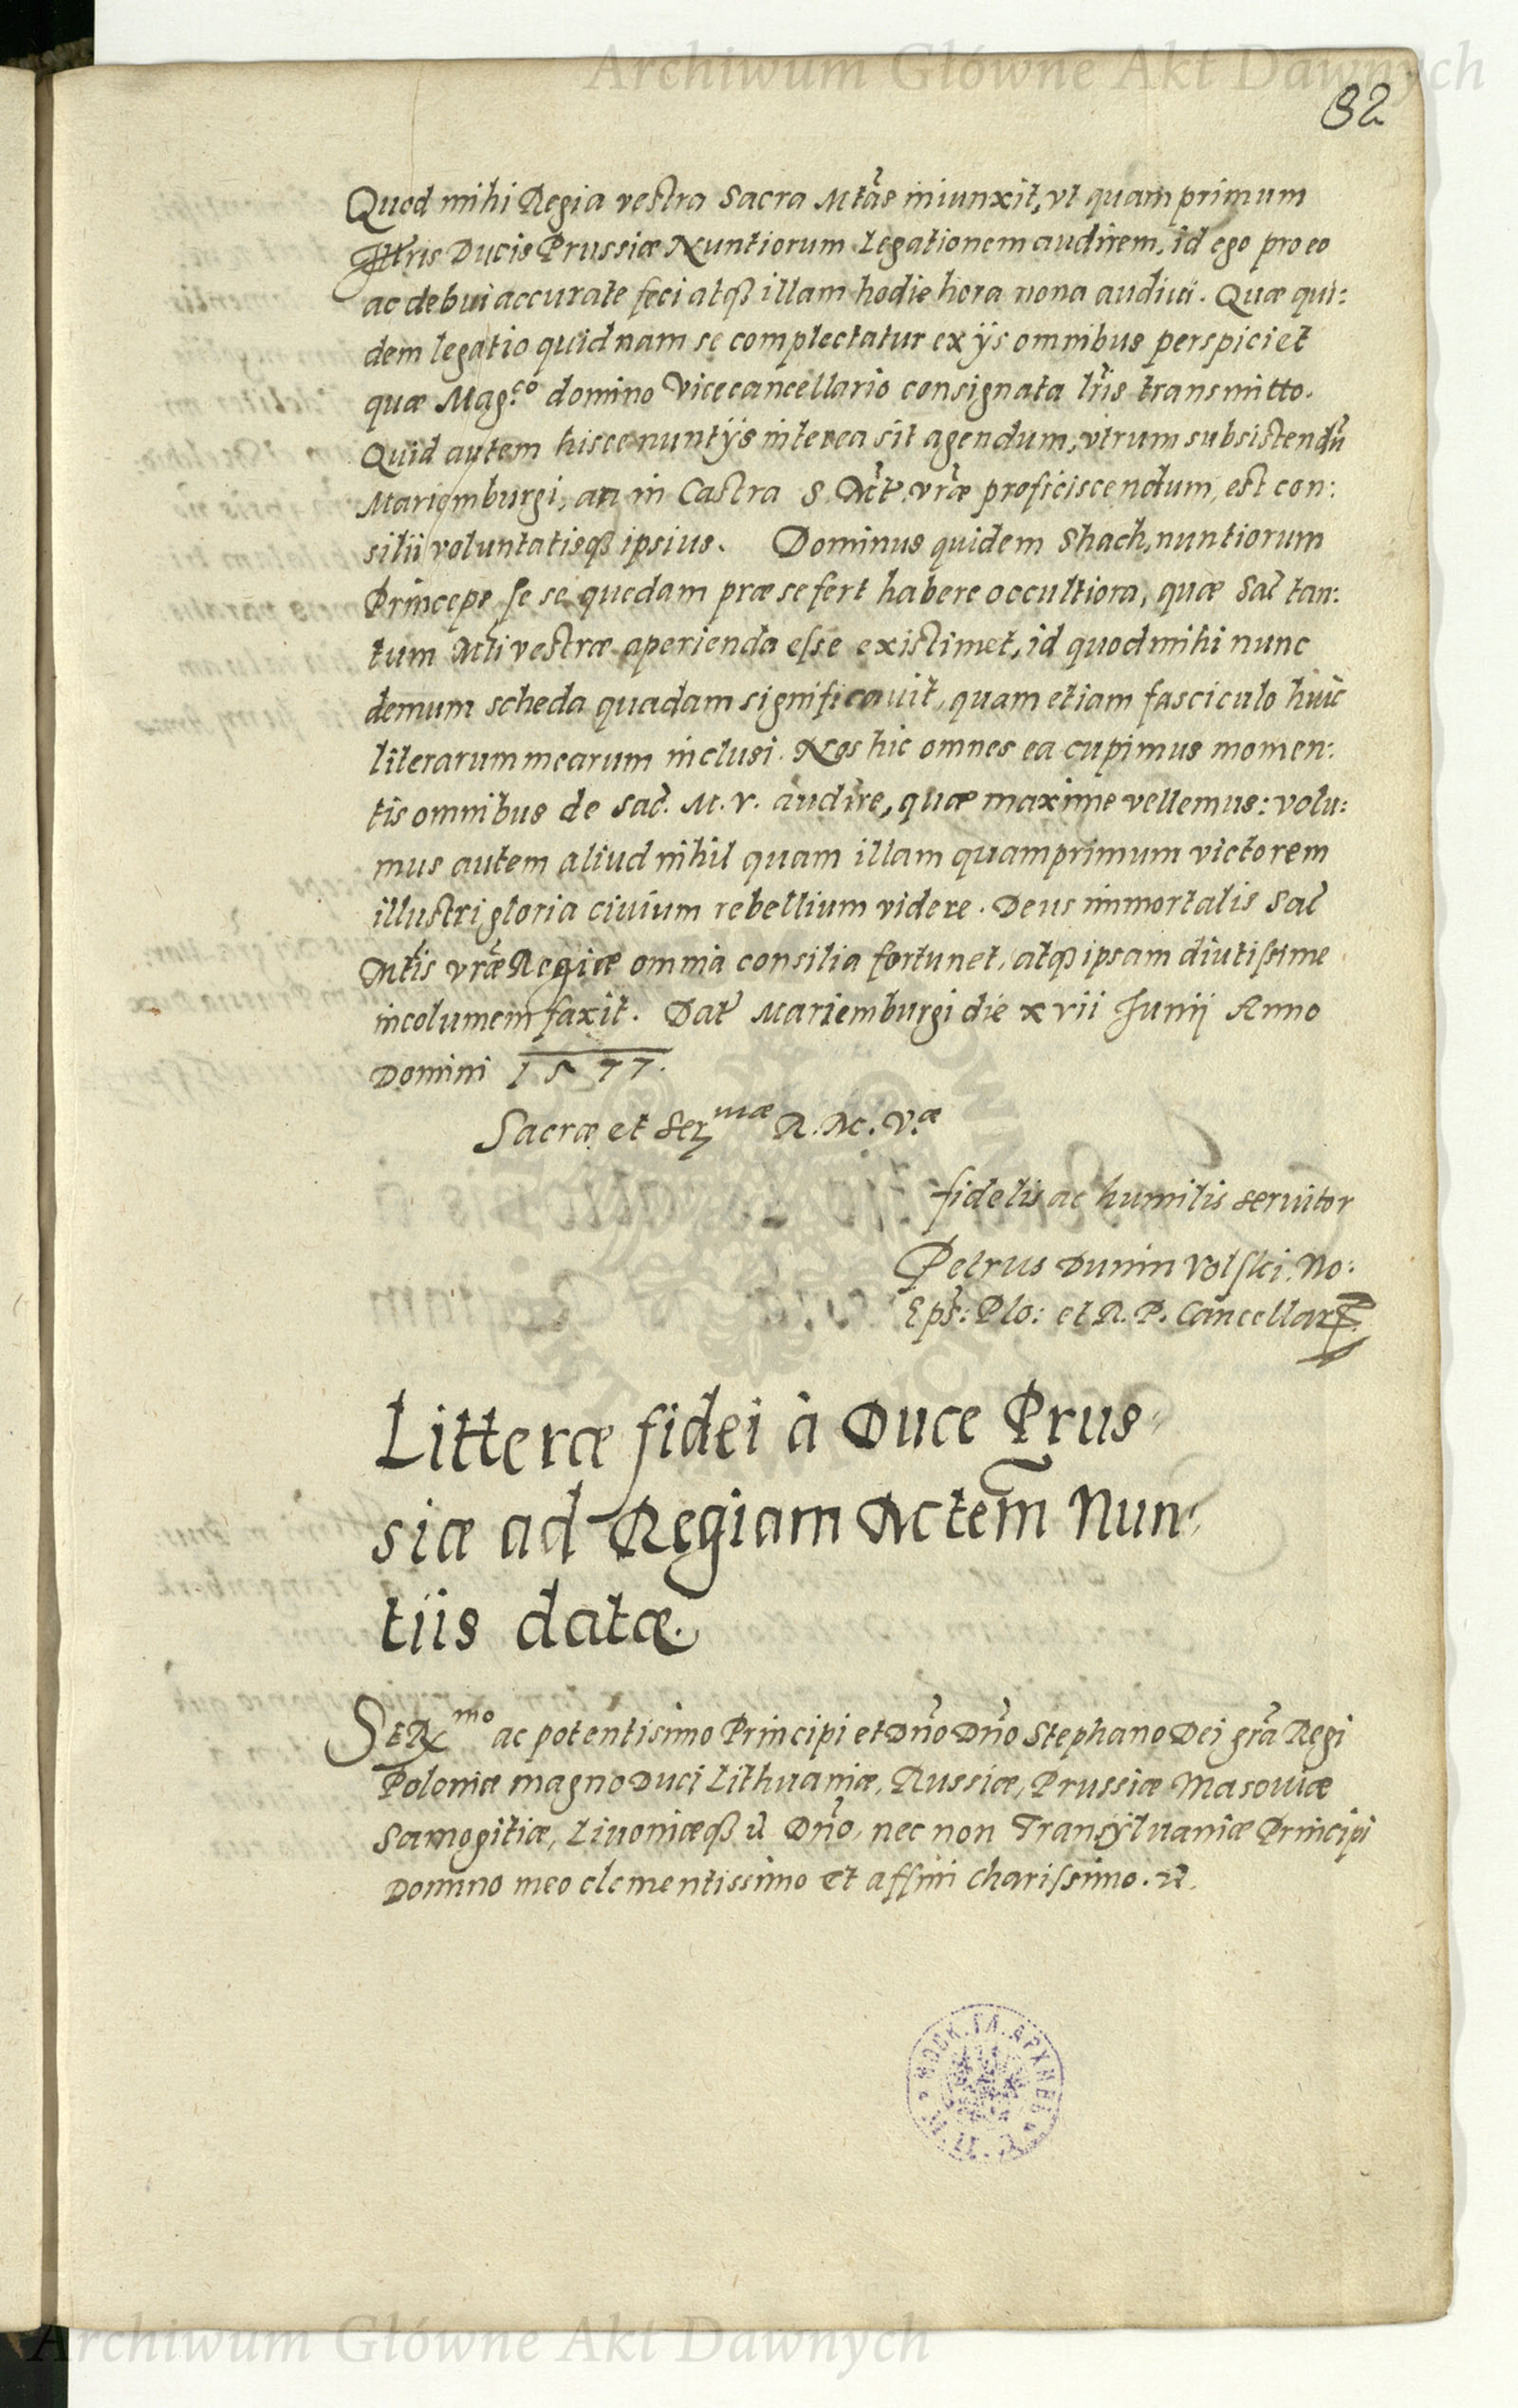 Archiwum Główne Akt Dawnych
82
Quod mihi Regia vestra Sacra Mtãs iniunxit, vt quam primum
Illris Ducis Prussiæ Nuntiorum Legationem audirem, id ego pro eo
ac debui accurate feci atqȝ illam hodie hora nona audiui. Quæ qui:
dem legatio quid nam se complectatur ex ijs omnibus perspiciet
quæ Mag.co domino Vicecancellario consignata lr̃is transmitto.
Quid autem hisce nuntijs interea sit agendum, vtrum subsistendũ
Mariemburgi, an in Castra S. Mt̃. vr̃æ proficiscendum, est con:
silii voluntatisqȝ ipsius. Dominus quidem Shach, nuntiorum
Princeps se se quedam præ se fert habere occultiora, quæ Sac̃ tan:
tum Mti vestræ aperienda esse existimet, id quod mihi nunc
demum scheda quadam significauit, quam etiam fasciculo huic
literarum mearum inclusi. Nos hic omnes ea cupimus momen:
tis omnibus de Sac̃. M. V. audire, quæ maxime vellemus: volu:
mus autem aliud nihil quam illam quamprimum victorem
illustri gloria ciuium rebellium videre. Deus immortalis Sac̃
Mt̃is vr̃æ Regiæ omnia consilia fortunet, atqȝ ipsam diutissime
incolumem faxit. Dat̃ Mariemburgi die xvii Junij Anno
Domini 1577.
Sacræ et Ser.mæ R. M. V.æ
fidelis ac humilis seruitor
Petrus Dunin Volski. No:
Ep̃s: Plo: et R. P. Cancellar
Litteræ fidei à Duce Prus-
siæ ad Regiam Mctem̃ Nun-
tiis datæ.
Ser.mo ac potentissimo Principi et Dño Dño Stephano Dei gr̃a Regi
Poloniæ magno Duci Lithuaniæ, Russiæ, Prussiæ Masouiæ
Samogitiæ, Liuoniæqȝ Dño, nec non Transyluaniæ Principi
Domino meo clementissimo et affini charissimo.
МОСК. ГЛ. АРХИВЪ
Archiwum Główne Akt Dawnych